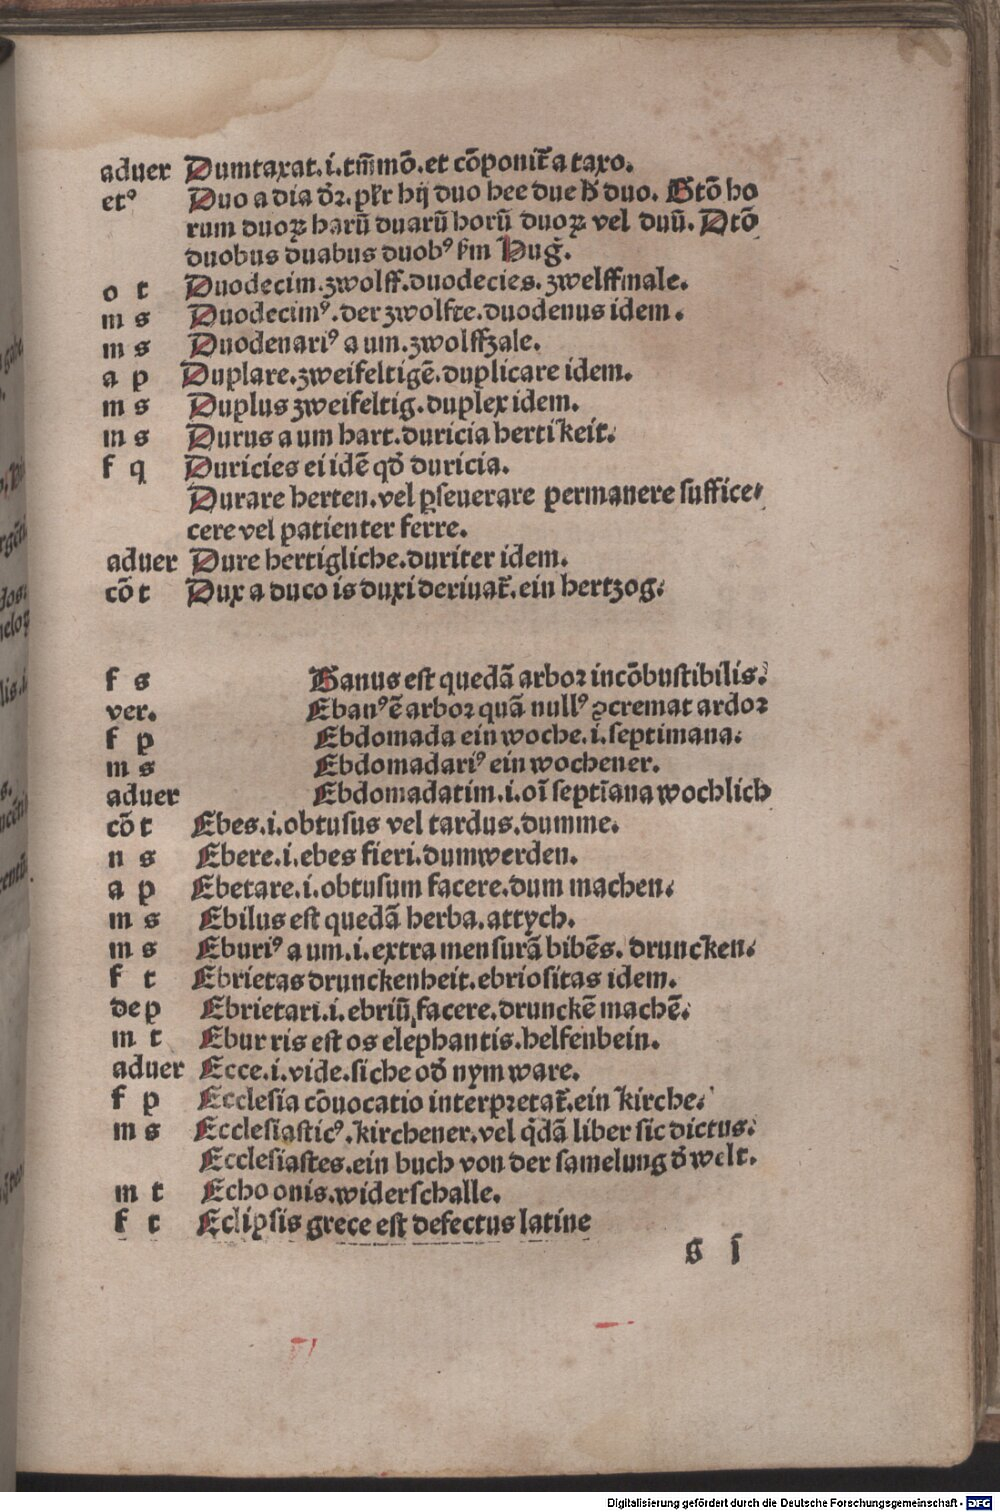 aduer Dumtaxat.i.tm̄mō.et cōponit᷑ a taxo.
etꝰ Duo a dia dr̄. pl̄r hij duo hee due h̄ duo. Gtō ho
rum duoꝝ harū duarū horū duoꝝ vel duū. Dtō
duobus duabus duobꝰ ẜm Huḡ.
o t Duodecim.zwolff.duodecies.zwelffmale.
m s Duodecimꝰ.der zwolfte.duodenus idem.
m s Duodenariꝰ a um.zwolffzale.
a p Duplare.zweifeltigē.duplicare idem.
m s Duplus zweifeltig.duplex idem.
m s Durus a um hart.duricia hertikeit.
f q Duricies ei idē qd̄ duricia.
Durare herten.vel ꝑseuerare permanere suffice⸗
cere vel patienter ferre.
aduer Dure hertigliche.duriter idem.
cō t Dux a duco is duxi deriuat᷑.ein hertzog.
f s Banus est quedā arbor incōbustibilis.
ver. Ebanꝰ ē arbor quā nullꝰ ꝯcremat ardor
f p Ebdomada ein woche.i.septimana.
m s Ebdomadariꝰ ein wochener.
aduer Ebdomadatim.i.oī septīana wochlich
cō t Ebes.i.obtusus vel tardus.dumme.
n s Ebere.i.ebes fieri.dumwerden.
a p Ebetare.i.obtusum facere.dum machen.
m s Ebilus est quedā herba.attych.
m s Eburiꝰ a um.i.extra mensurā bibēs.druncken.
f t Ebrietas drunckenheit.ebriositas idem.
dep Ebrietari.i.ebriū facere.drunckē machē.
m t Ebur ris est os elephantis.helfenbein.
aduer Ecce.i.vide.siche od̄ nym ware.
f p Ecclesia cōuocatio interpretat᷑.ein kirche.
m s Ecclesiasticꝰ.kirchener.vel q̄dā liber sic dictus.
Ecclesiastes.ein buch von der samelung d̄ welt.
m t Echo onis.widerschalle.
f t Eclipsis grece est defectus latine
g i
Digitalisierung gefördert durch die Deutsche Forschungsgemeinschaft - DFG